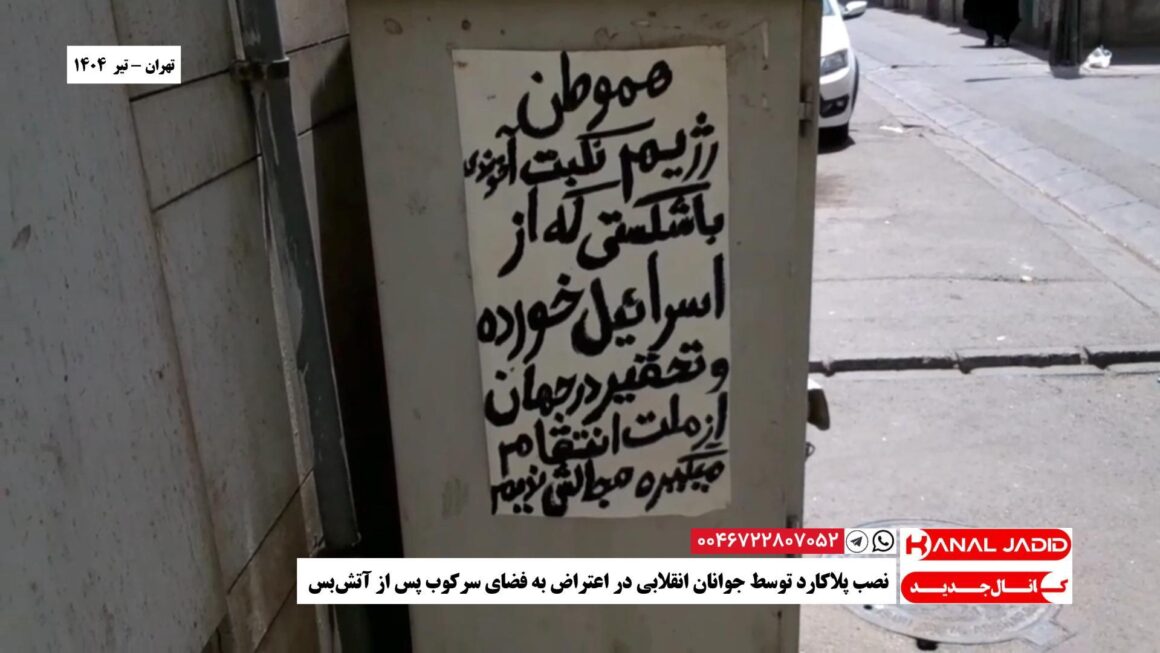 تهران – تیر ۱۴۰۴
هموطن
رژیم نکبت آخوندی
باشکستی که از
اسرائیل خورده
و تحقیر در جهان
از ملت انتقام
میگیره مجالش ندیم
۰۰۴۶۷۲۲۸۰۷۰۵۲
KANAL JADID
کانال جدید
نصب پلاکارد توسط جوانان انقلابی در اعتراض به فضای سرکوب پس از آتش‌بس